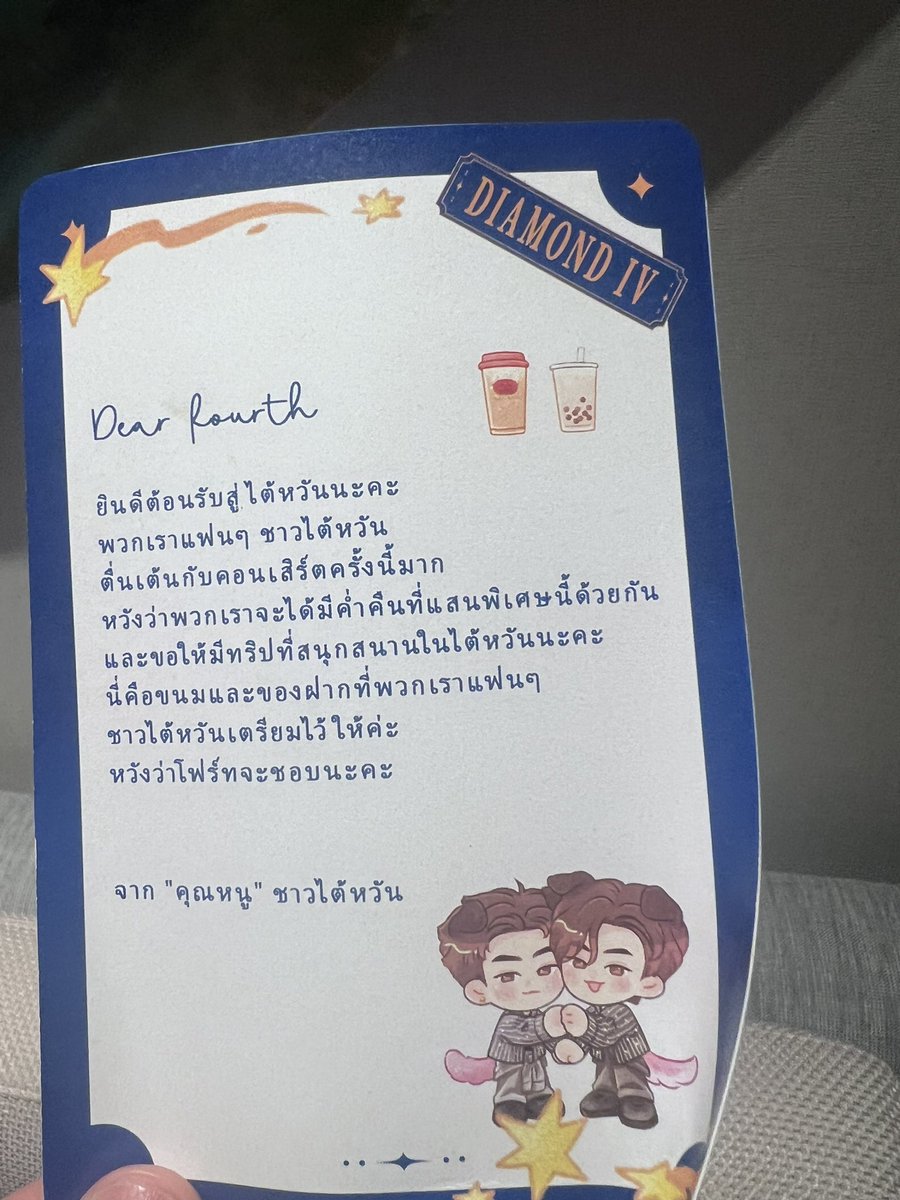 DIAMOND IV
Dear Fourth
ยินดีต้อนรับสู่ไต้หวันนะคะ
พวกเราแฟนๆ ชาวไต้หวัน
ตื่นเต้นกับคอนเสิร์ตครั้งนี้มาก
หวังว่าพวกเราจะได้มีค่ำคืนที่แสนพิเศษนี้ด้วยกัน
และขอให้มีทริปที่สนุกสนานในไต้หวันนะคะ
นี่คือขนมและของฝากที่พวกเราแฟนๆ
ชาวไต้หวันเตรียมไว้ให้ค่ะ
หวังว่าโฟร์ทจะชอบนะคะ
จาก "คุณหนู" ชาวไต้หวัน